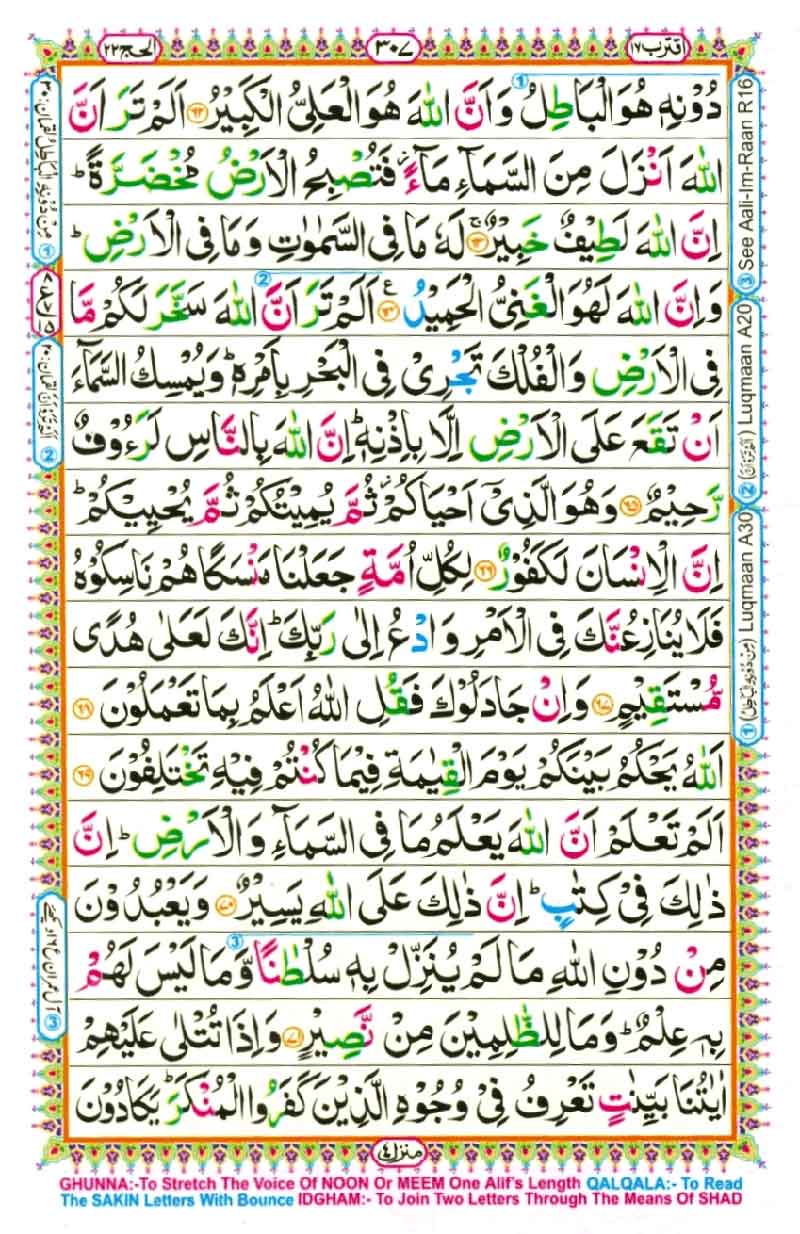 اقترب ١٧
٣٠٧
الحج ٢٢
دُوْنِهٖ هُوَ الْبَاطِلُ وَاَنَّ اللّٰهَ هُوَ الْعَلِيُّ الْكَبِيْرُ ﴿٦٢﴾ اَلَمْ تَرَ اَنَّ
اللّٰهَ اَنْزَلَ مِنَ السَّمَآءِ مَآءً ؗ فَتُصْبِحُ الْاَرْضُ مُخْضَرَّةً ؕ
اِنَّ اللّٰهَ لَطِيْفٌ خَبِيْرٌ ﴿٦٣﴾ لَهٗ مَا فِي السَّمٰوٰتِ وَمَا فِي الْاَرْضِ ؕ
وَاِنَّ اللّٰهَ لَهُوَ الْغَنِيُّ الْحَمِيْدُ ﴿٦٤﴾ اَلَمْ تَرَ اَنَّ اللّٰهَ سَخَّرَ لَكُمْ مَّا
فِي الْاَرْضِ وَالْفُلْكَ تَجْرِيْ فِي الْبَحْرِ بِاَمْرِهٖ ؕ وَيُمْسِكُ السَّمَآءَ
اَنْ تَقَعَ عَلَى الْاَرْضِ اِلَّا بِاِذْنِهٖ ؕ اِنَّ اللّٰهَ بِالنَّاسِ لَرَءُوْفٌ
رَّحِيْمٌ ﴿٦٥﴾ وَهُوَ الَّذِيْٓ اَحْيَاكُمْ ؗ ثُمَّ يُمِيْتُكُمْ ثُمَّ يُحْيِيْكُمْ ؕ
اِنَّ الْاِنْسَانَ لَكَفُوْرٌ ﴿٦٦﴾ لِكُلِّ اُمَّةٍ جَعَلْنَا مَنْسَكًا هُمْ نَاسِكُوْهُ
فَلَا يُنَازِعُنَّكَ فِي الْاَمْرِ وَادْعُ اِلٰى رَبِّكَ ؕ اِنَّكَ لَعَلٰى هُدًى
مُّسْتَقِيْمٍ ﴿٦٧﴾ وَاِنْ جَادَلُوْكَ فَقُلِ اللّٰهُ اَعْلَمُ بِمَا تَعْمَلُوْنَ ﴿٦٨﴾
اَللّٰهُ يَحْكُمُ بَيْنَكُمْ يَوْمَ الْقِيٰمَةِ فِيْمَا كُنْتُمْ فِيْهِ تَخْتَلِفُوْنَ ﴿٦٩﴾
اَلَمْ تَعْلَمْ اَنَّ اللّٰهَ يَعْلَمُ مَا فِي السَّمَآءِ وَالْاَرْضِ ؕ اِنَّ
ذٰلِكَ فِيْ كِتٰبٍ ؕ اِنَّ ذٰلِكَ عَلَى اللّٰهِ يَسِيْرٌ ﴿٧٠﴾ وَيَعْبُدُوْنَ
مِنْ دُوْنِ اللّٰهِ مَا لَمْ يُنَزِّلْ بِهٖ سُلْطٰنًا وَّمَا لَيْسَ لَهُمْ
بِهٖ عِلْمٌ ؕ وَمَا لِلظّٰلِمِيْنَ مِنْ نَّصِيْرٍ ﴿٧١﴾ وَاِذَا تُتْلٰى عَلَيْهِمْ
اٰيٰتُنَا بَيِّنٰتٍ تَعْرِفُ فِيْ وُجُوْهِ الَّذِيْنَ كَفَرُوا الْمُنْكَرَ ؕ يَكَادُوْنَ
منزل ٤
① (مِنْ دُوْنِهِ الْبَاطِلُ) Luqmaan A30 ② (اَلَمْ تَرَ اَنَّ) Luqmaan A20 ③ See Aali-Im-Raan R16
GHUNNA:-To Stretch The Voice Of NOON Or MEEM One Alif's Length QALQALA:- To Read
The SAKIN Letters With Bounce IDGHAM:- To Join Two Letters Through The Means Of SHAD